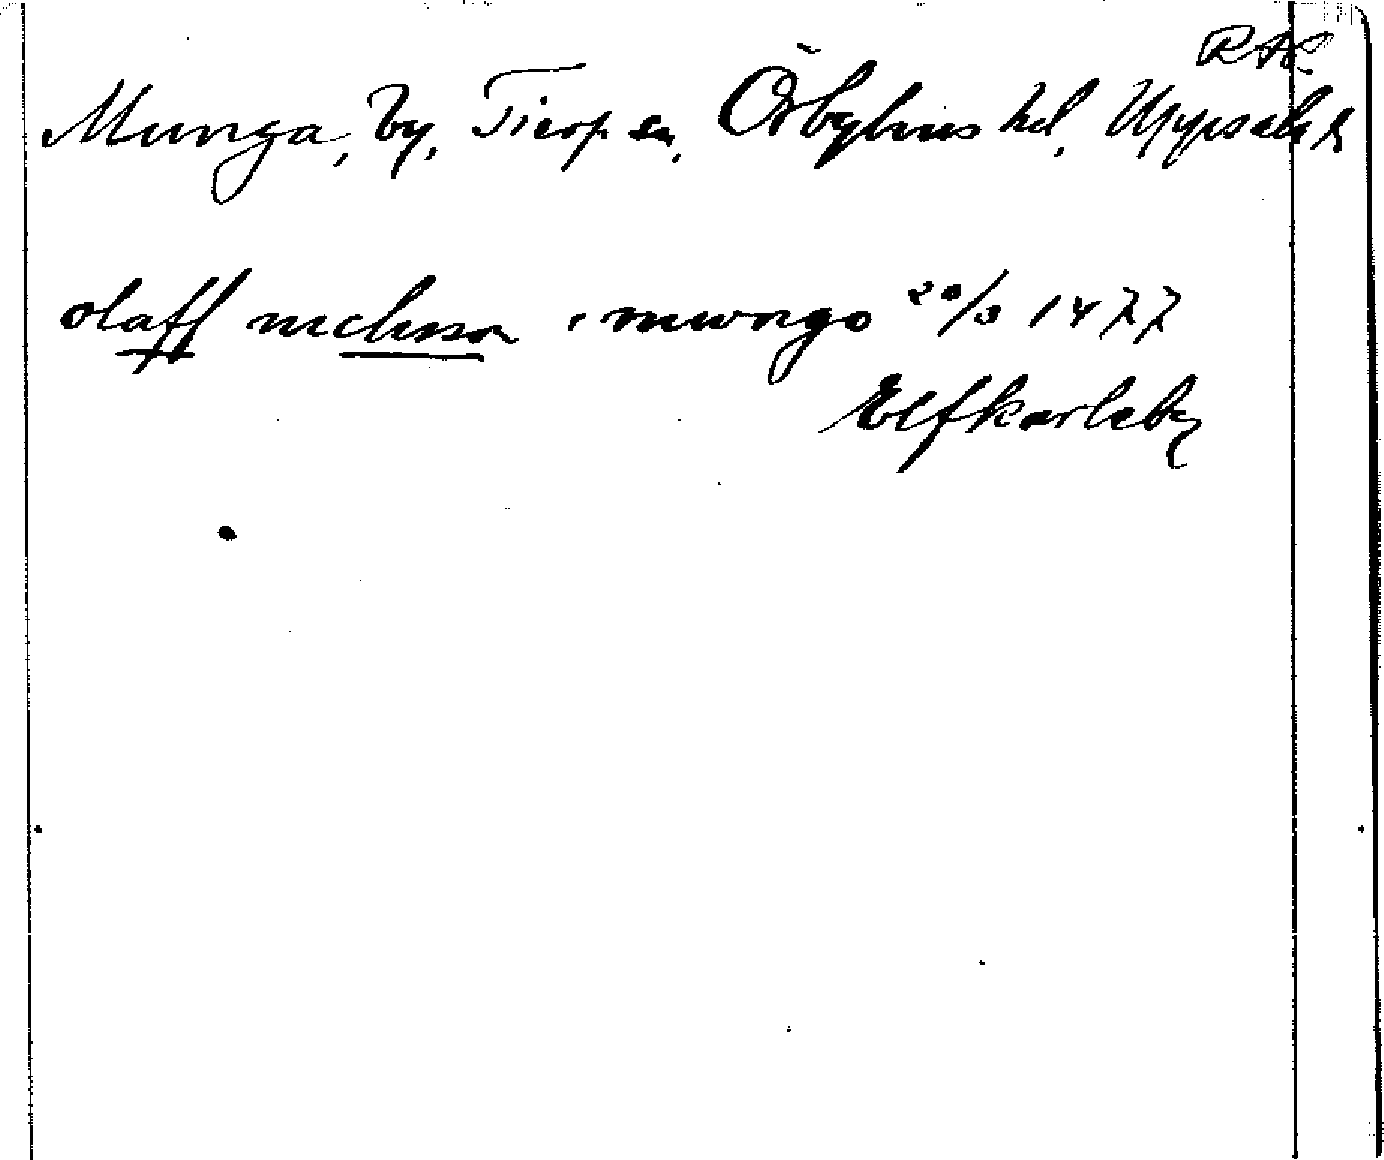 RAP.
Munga, by, Tierp sn, Örbyhus hd, Uppsala l
olaff niclisson i mwngo 20/3 1477
Elfkarleby